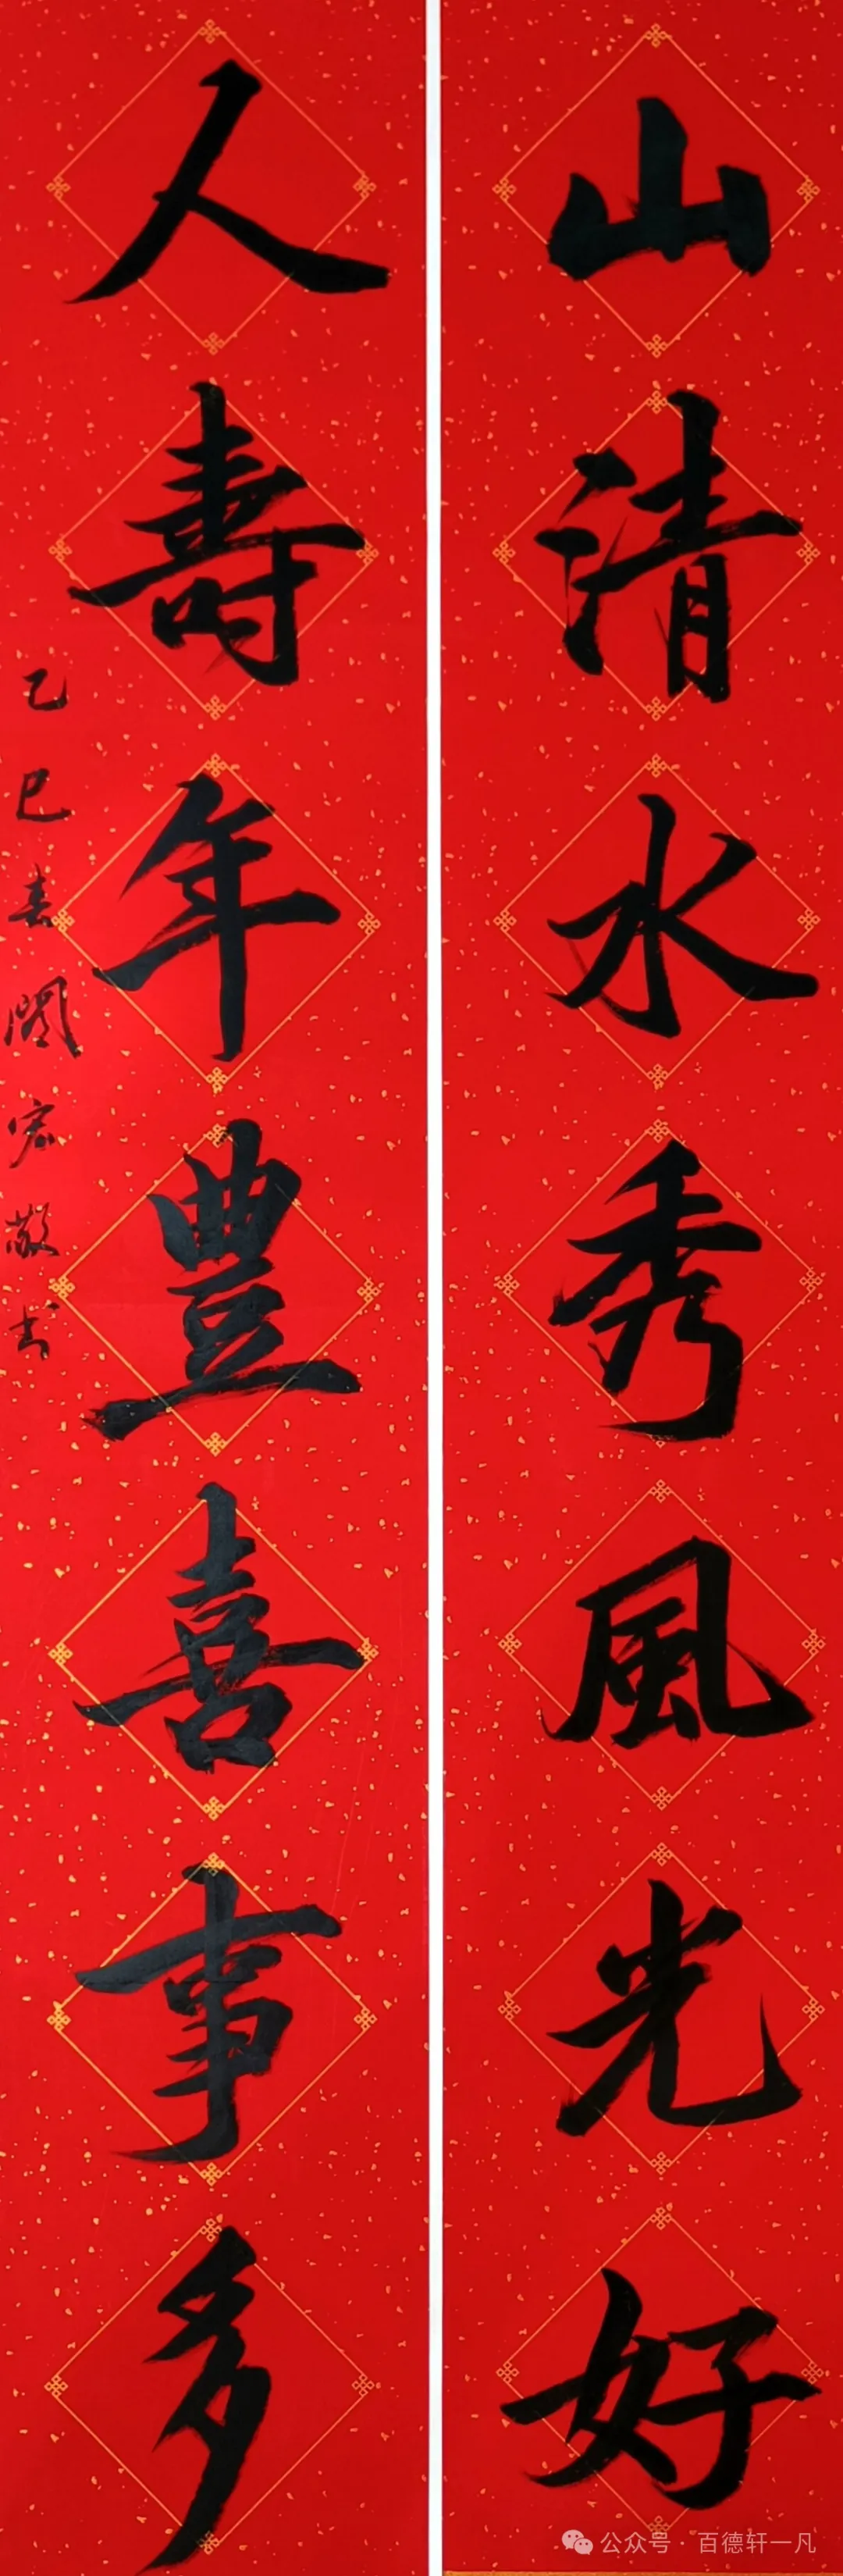 山清水秀風光好
人壽年豐喜事多
乙巳春閻宏敬书
公众号·百德轩一凡